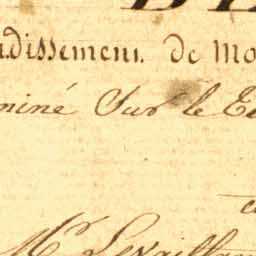 ndissement. de Mo
miné Sur le
Mr Levaillan